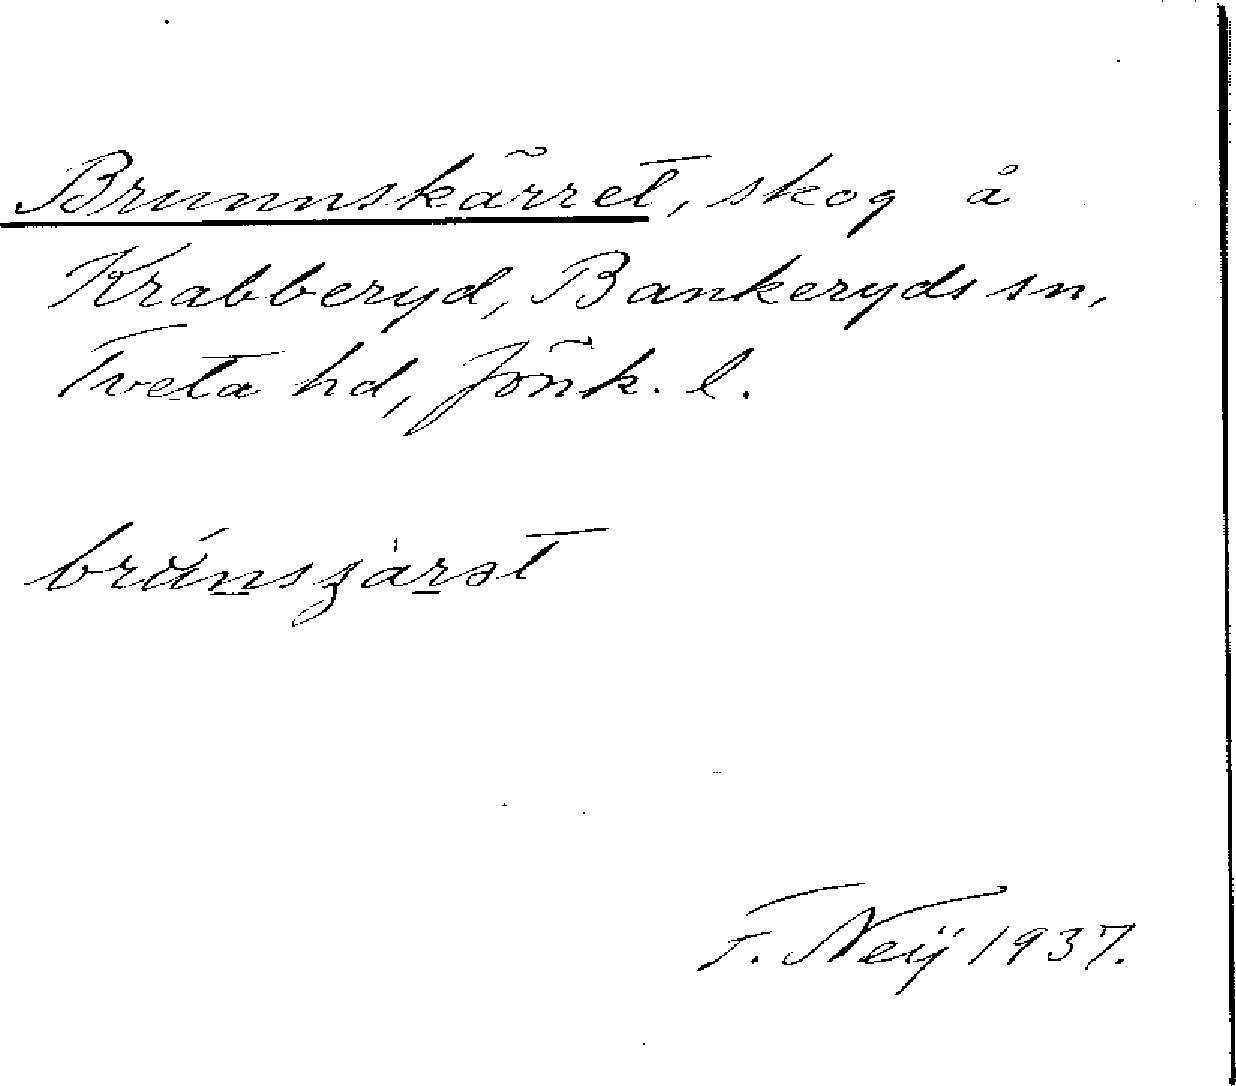 Brunnskärret, skog å
Krabberyd, Bankeryds sn,
Tveta hd, Jönk. l.
F. Neij 1937.